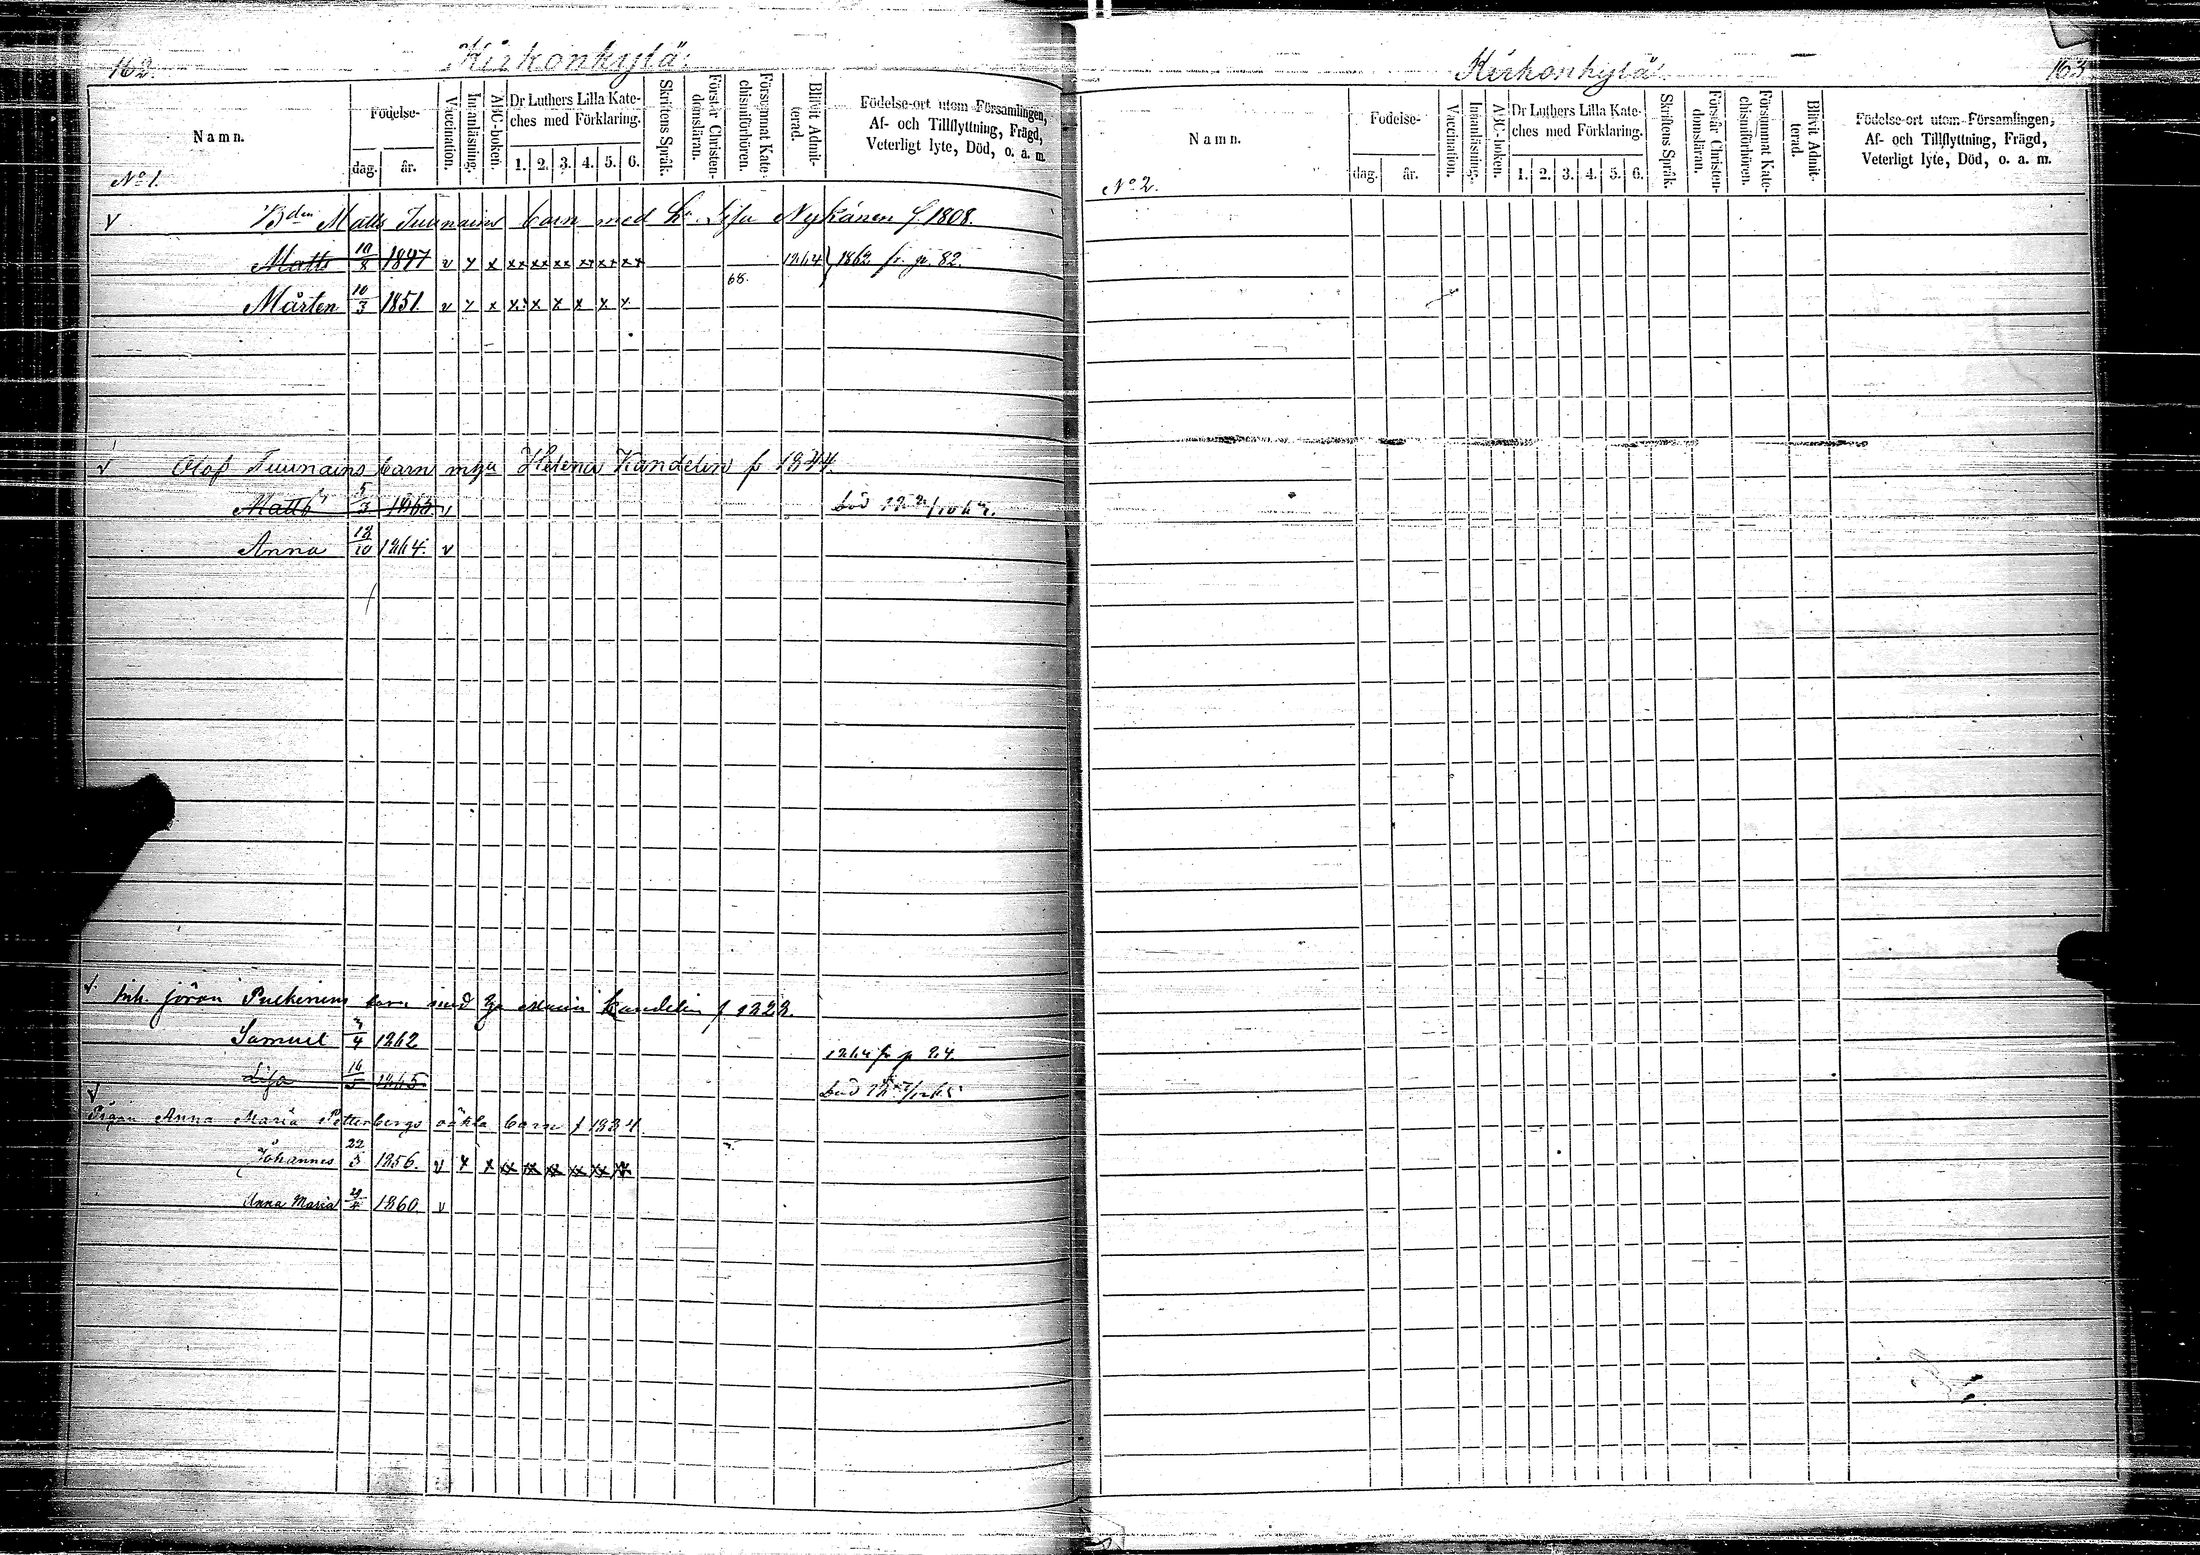 162.
Kirkonkylä.
Namn.
Födelse-
dag.
år.
Vaccination.
Innanläsning.
ABC-boken.
Dr Luthers Lilla Kate-
ches med Förklaring.
1. 2. 3. 4. 5. 6.
Skriftens Språk.
Förstår Christen-
domsläran.
Försummat Kate-
chismiförhören.
Blivit Admit-
terad.
Födelse-ort utom Församlingen,
Af- och Tillflyttning, Frägd,
Veterligt lyte, Död, o. a. m.
No 1.
v Bden Matts Tuunains barn med h. Lisa Nykänen f 1808.
Matts 10/8 1847 v x x xx xx xx xx xx xx 1864 1862 fr. p. 82.
68.
Mårten 10/3 1851. v x x x x x x x x
v Olof Tuunains barn m Helena Kandelin f 1844.
Matts 5/3 1863 v
Anna 13/10 1864. v
v Inh. Jöran Puckinens barn med Maria Kandelin f 1823.
Samuel /4 1862 1864 fr p 84
Lisa 16/5 1865
v
Pigan Anna Maria Petterbergs oäkta barn f 1834.
Johannes 22/5 1856. v x x xx xx xx xx xx xx
Anna Maria 1860. v
Kirkonkylä.
163
Namn.
Födelse-
dag.
år.
Vaccination.
Innanläsning.
ABC-boken.
Dr Luthers Lilla Kate-
ches med Förklaring.
1. 2. 3. 4. 5. 6.
Skriftens Språk.
Förstår Christen-
domsläran.
Försummat Kate-
chismiförhören.
Blivit Admit-
terad.
Födelse-ort utom Församlingen,
Af- och Tillflyttning, Frägd,
Veterligt lyte, Död, o. a. m.
No 2.